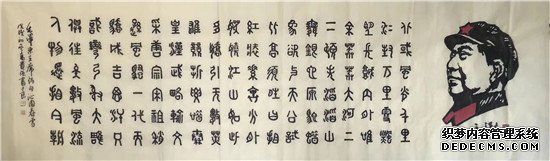 北國風光千里
冰封萬里雪飄
望長城內外惟
余莽莽大河上
下頓失滔滔山
舞銀蛇原馳蠟
象欲與天公試
比高須晴日看
紅裝素裹分外
妖嬈江山如此
多嬌引無數英
雄競折腰惜秦
皇漢武略輸文
采唐宗宋祖稍
遜風騷一代天
驕成吉思汗只
識彎弓射大雕
俱往矣數風流
人物還看今朝
毛澤東主席詩詞沁園春雪
戊戌初冬
织梦内容管理系统
DEDECMS.COM